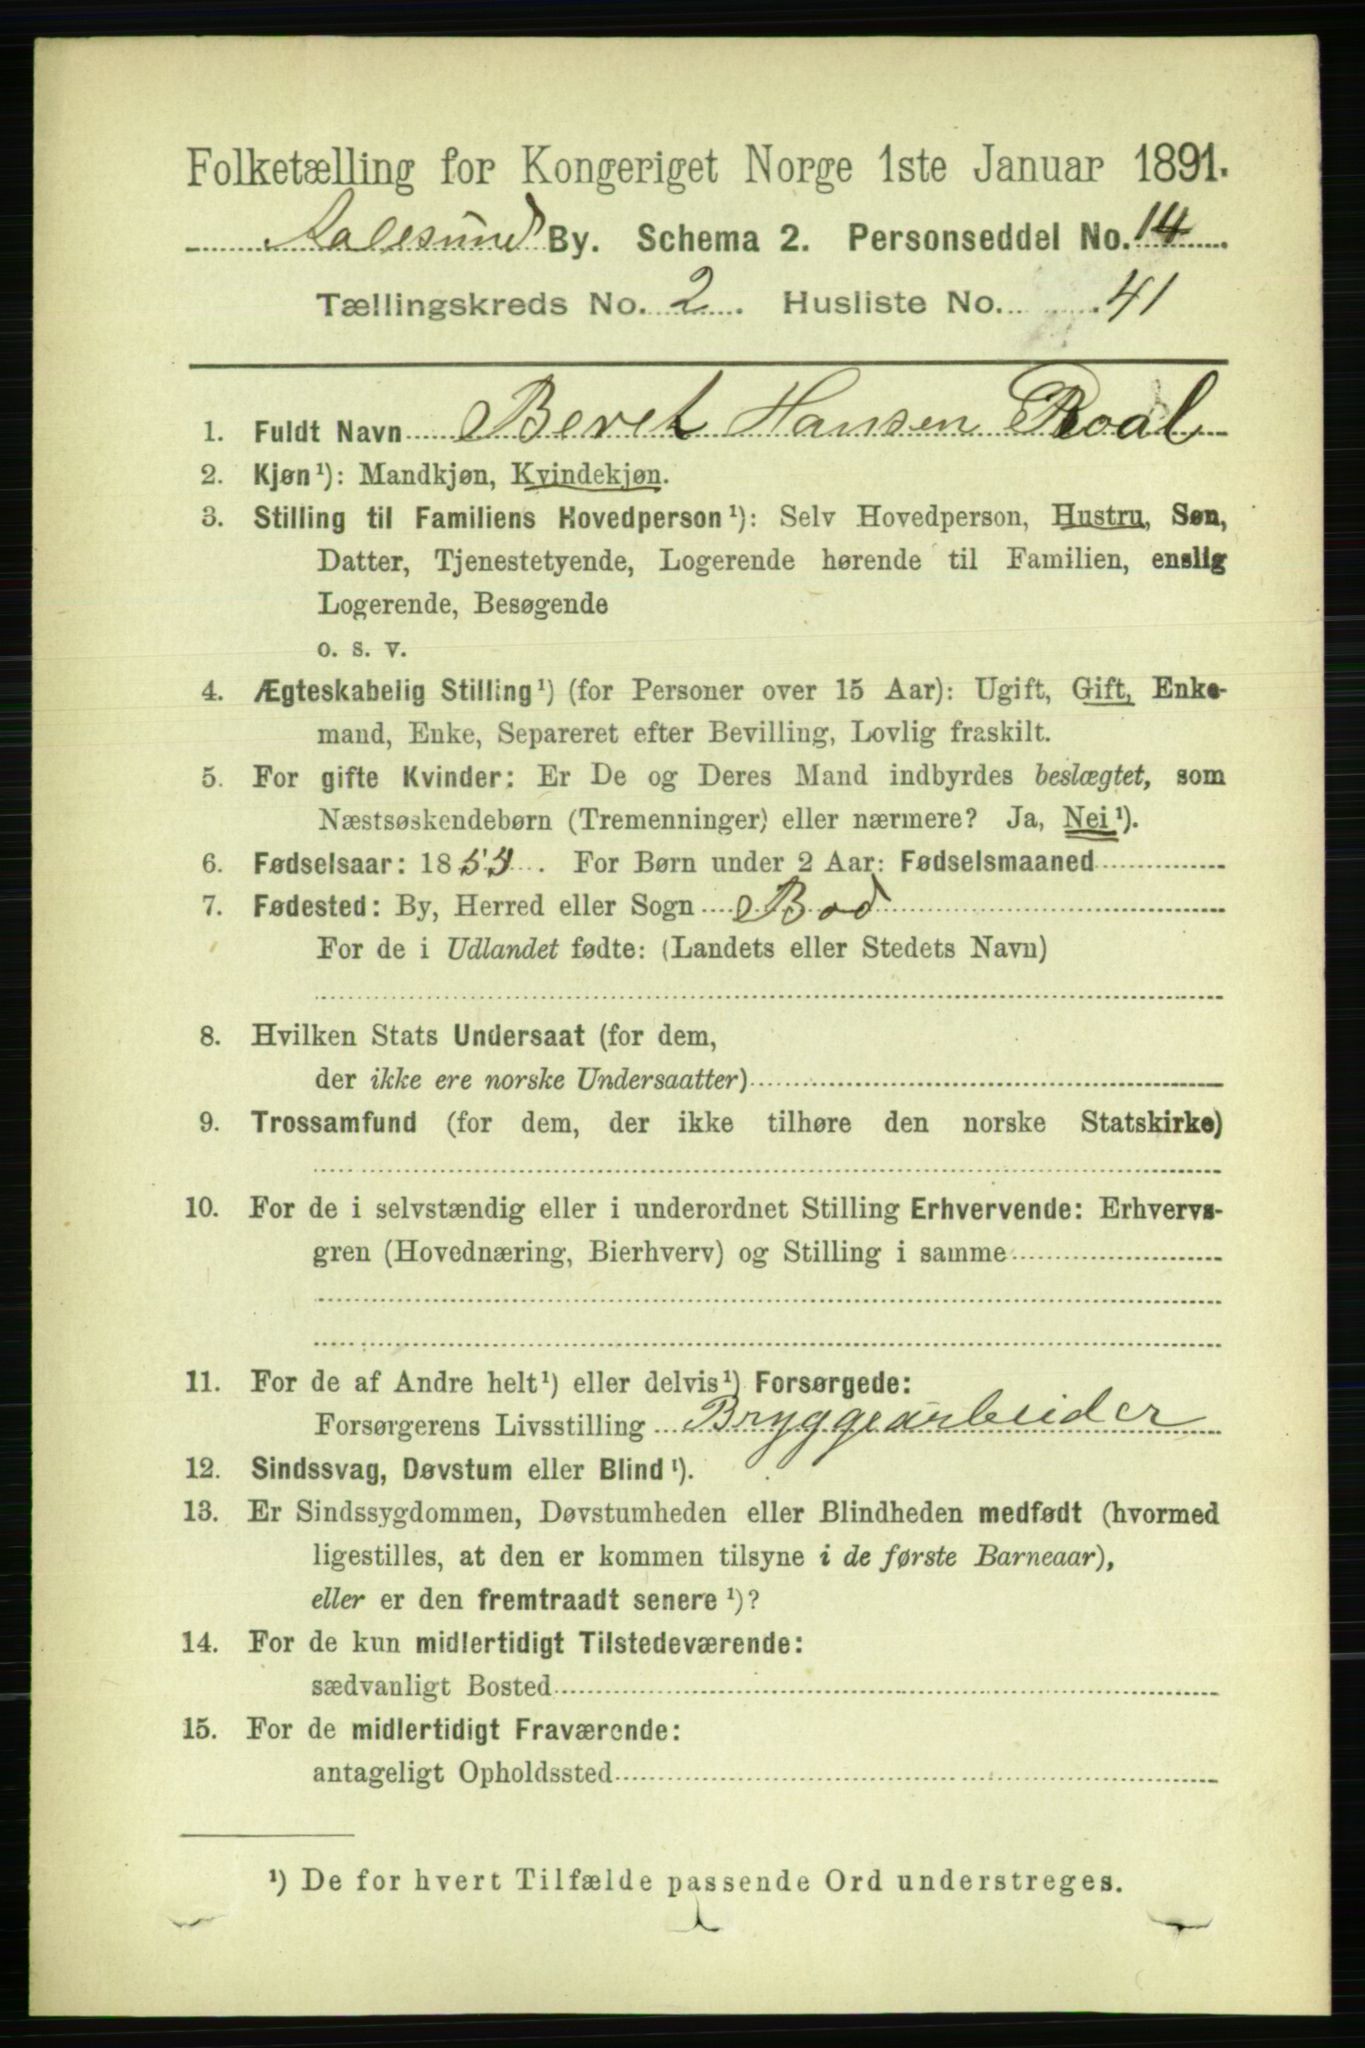 Folketælling for Kongeriget Norge 1ste Januar 1891.
Aalesund By. Schema 2. Personseddel No. 14
Tællingskreds No. 2. Husliste No. 41
1. Fuldt Navn Beret Hansen Roal
2. Kjøn¹): Mandkjøn, Kvindekjøn.
3. Stilling til Familiens Hovedperson¹): Selv Hovedperson, Hustru, Søn,
Datter, Tjenestetyende, Logerende hørende til Familien, enslig
Logerende, Besøgende
o. s. v.
4. Ægteskabelig Stilling¹) (for Personer over 15 Aar): Ugift, Gift, Enke-
mand, Enke, Separeret efter Bevilling, Lovlig fraskilt.
5. For gifte Kvinder: Er De og Deres Mand indbyrdes beslægtet, som
Næstsøskendebørn (Tremenninger) eller nærmere? Ja, Nei¹).
6. Fødselsaar: 18 . For Børn under 2 Aar: Fødselsmaaned
7. Fødested: By, Herred eller Sogn Bod
For de i Udlandet fødte: (Landets eller Stedets Navn)
8. Hvilken Stats Undersaat (for dem,
der ikke ere norske Undersaatter)
9. Trossamfund (for dem, der ikke tilhøre den norske Statskirke)
10. For de i selvstændig eller i underordnet Stilling Erhvervende: Erhvervs-
gren (Hovednæring, Bierhverv) og Stilling i samme
11. For de af Andre helt¹) eller delvis¹) Forsørgede:
Forsørgerens Livsstilling Bryggearbeider
12. Sindssvag, Døvstum eller Blind¹).
13. Er Sindssygdommen, Døvstumheden eller Blindheden medfødt (hvormed
ligestilles, at den er kommen tilsyne i de første Barneaar),
eller er den fremtraadt senere¹)?
14. For de kun midlertidigt Tilstedeværende:
sædvanligt Bosted
15. For de midlertidigt Fraværende:
antageligt Opholdssted
¹) De for hvert Tilfælde passende Ord understreges.